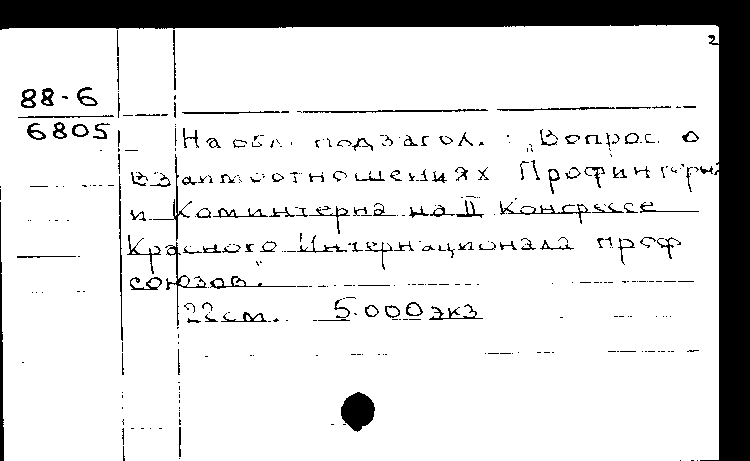 2
88-6
6805
На обл. подзагол. : „Вопрос о
взаимоотношениях Профинтерна
и Коминтерна на II Конгрессе
Красного Интернационала проф
союзов".
22см. 5.000 экз